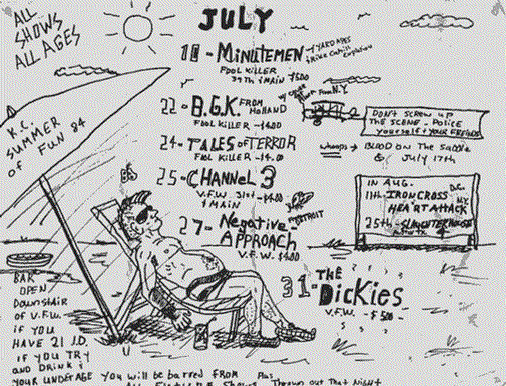 ALL
SHOWS
ALL AGES
JULY
10 - MINUTEMEN
FOOL KILLER
39TH & MAIN $5.00
22 - B.G.K. FROM HOLLAND
FOOL KILLER - $4.00
FROM N.Y
24 - TALES OF TERROR
FOOL KILLER - $4.00
25 - CHANNEL 3
V.F.W. 31st - $4.00
& MAIN
27 - Negative
APPROACH
V.F.W. $4.00
FROM
DETROIT
31 - THE
DICKIES
V.F.W. - $5.00 -
K.C.
SUMMER
OF FUN 84
DON'T SCREW UP
THE SCENE - POLICE
yourself & YOUR FRIENDS
whoops → BLOOD ON THE SADDLE
July 17th
IN AUG.
11th IRONCROSS D.C.
HEART ATTACK N.Y.
25th SLAUGHTERHOUSE
BAR
OPEN
DOWNSTAIR
OF V.F.W.
if you
HAVE 21 I.D.
IF YOU TRY
AND DRINK &
YOUR UNDERAGE YOU will be barred FROM
ALL FUTURE Shows Thrown out That Night